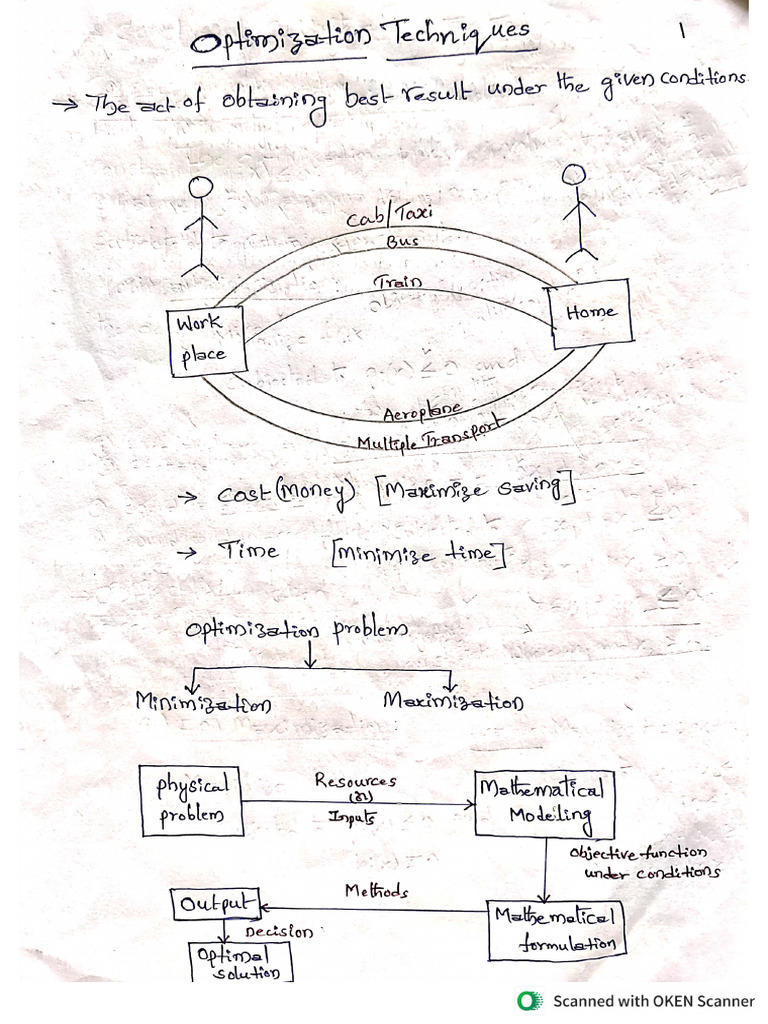 Optimization Techniques
1
→ The act of obtaining best result under the given conditions.
Cab/Taxi
Bus
Train
Work
place
Home
Aeroplane
Multiple Transport
→ Cost (Money) [Maximize saving]
→ Time [Minimize time]
Optimization problem
Minimization Maximization
physical
problem
Resources
(or)
Inputs
Mathematical
Modeling
Objective function
under conditions
Mathematical
formulation
Methods
Output
Decision
Optimal
solution
Scanned with OKEN Scanner